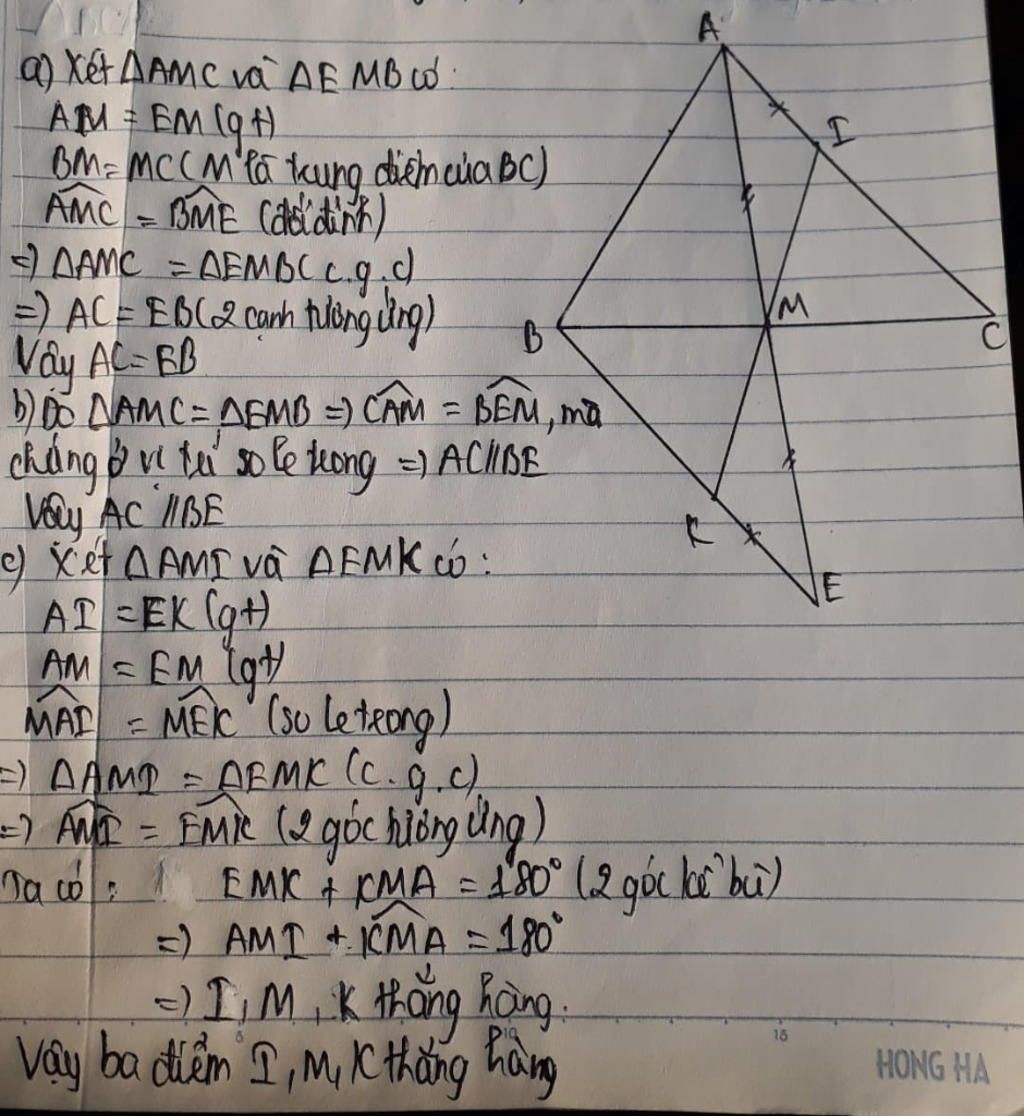 a) Xét ΔAMC và ΔEMB có:
AM = EM (gt)
BM = MC (M là trung điểm của BC)
\widehat{AMC} = \widehat{BME} (đối đỉnh)
=) ΔAMC = ΔEMB (c.g.c)
=) AC = EB (2 cạnh tương ứng)
Vậy AC = EB
b) Do ΔAMC = ΔEMB =) \widehat{CAM} = \widehat{BEM}, mà
chúng ở vị trí so le trong =) AC // BE
Vậy AC // BE
c) Xét ΔAMI và ΔEMK có:
AI = EK (gt)
AM = EM (gt)
\widehat{MAI} = \widehat{MEK} (so le trong)
=) ΔAMI = ΔEMK (c.g.c)
=) \widehat{AMI} = \widehat{EMK} (2 góc tương ứng)
Ta có: EMK + KMA = 180° (2 góc kề bù)
=) AMI + \widehat{KMA} = 180°
=) I, M, K thẳng hàng.
Vậy ba điểm I, M, K thẳng hàng
A
I
B
M
C
K
E
15
HONG HA